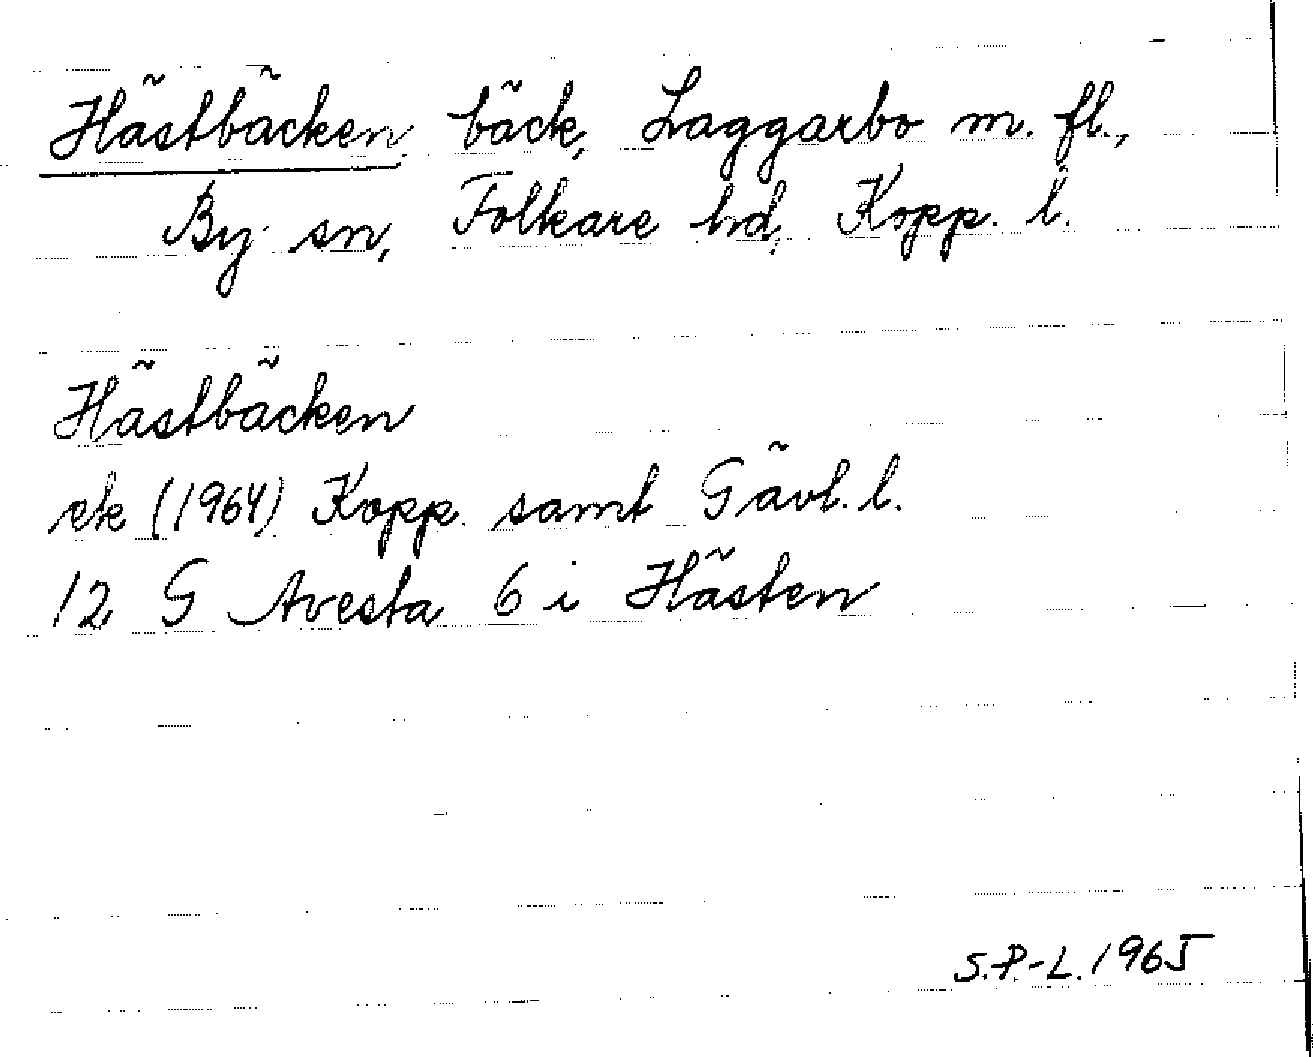 Hästbäcken, bäck, Laggarbo m. fl.,
By sn, Folkare hd, Kopp. l.
Hästbäcken
ek (1964) Kopp. samt Gävl. l.
12 G Avesta 6 i Hästen
S.P.-L. 1965